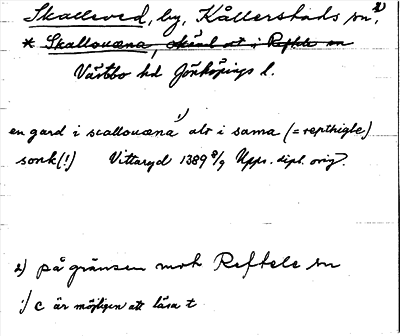 Skalleved, by, Kållerstads sn, 2)
* Skallouæna, okänd ort i Reftele sn
Västbo hd Jönköpings l.
en gard i scallouæna 1) alt i sama (= repthigle)
sonk (!) Vittaryd 1389 8/9 Upps. dipl. orig.
2) på gränsen mot Reftele sn
1) c är möjligen att läsa t